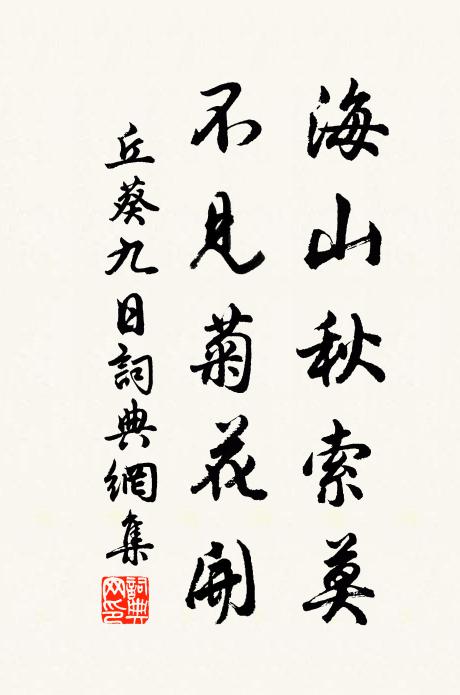 海山秋索莫
不見菊花開
丘葵九日詞典網集
詞典網印